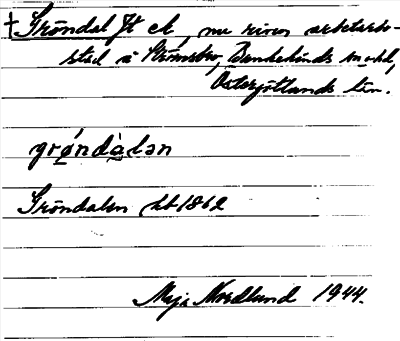 † Gröndal Jt et, nu riven arbetarbo-
stad å Strömsbro, Bankekinds sn o. hd,
Östergötlands län.
grǿndàlən
Gröndalen hb 1862
Maja Nordlund 1944.